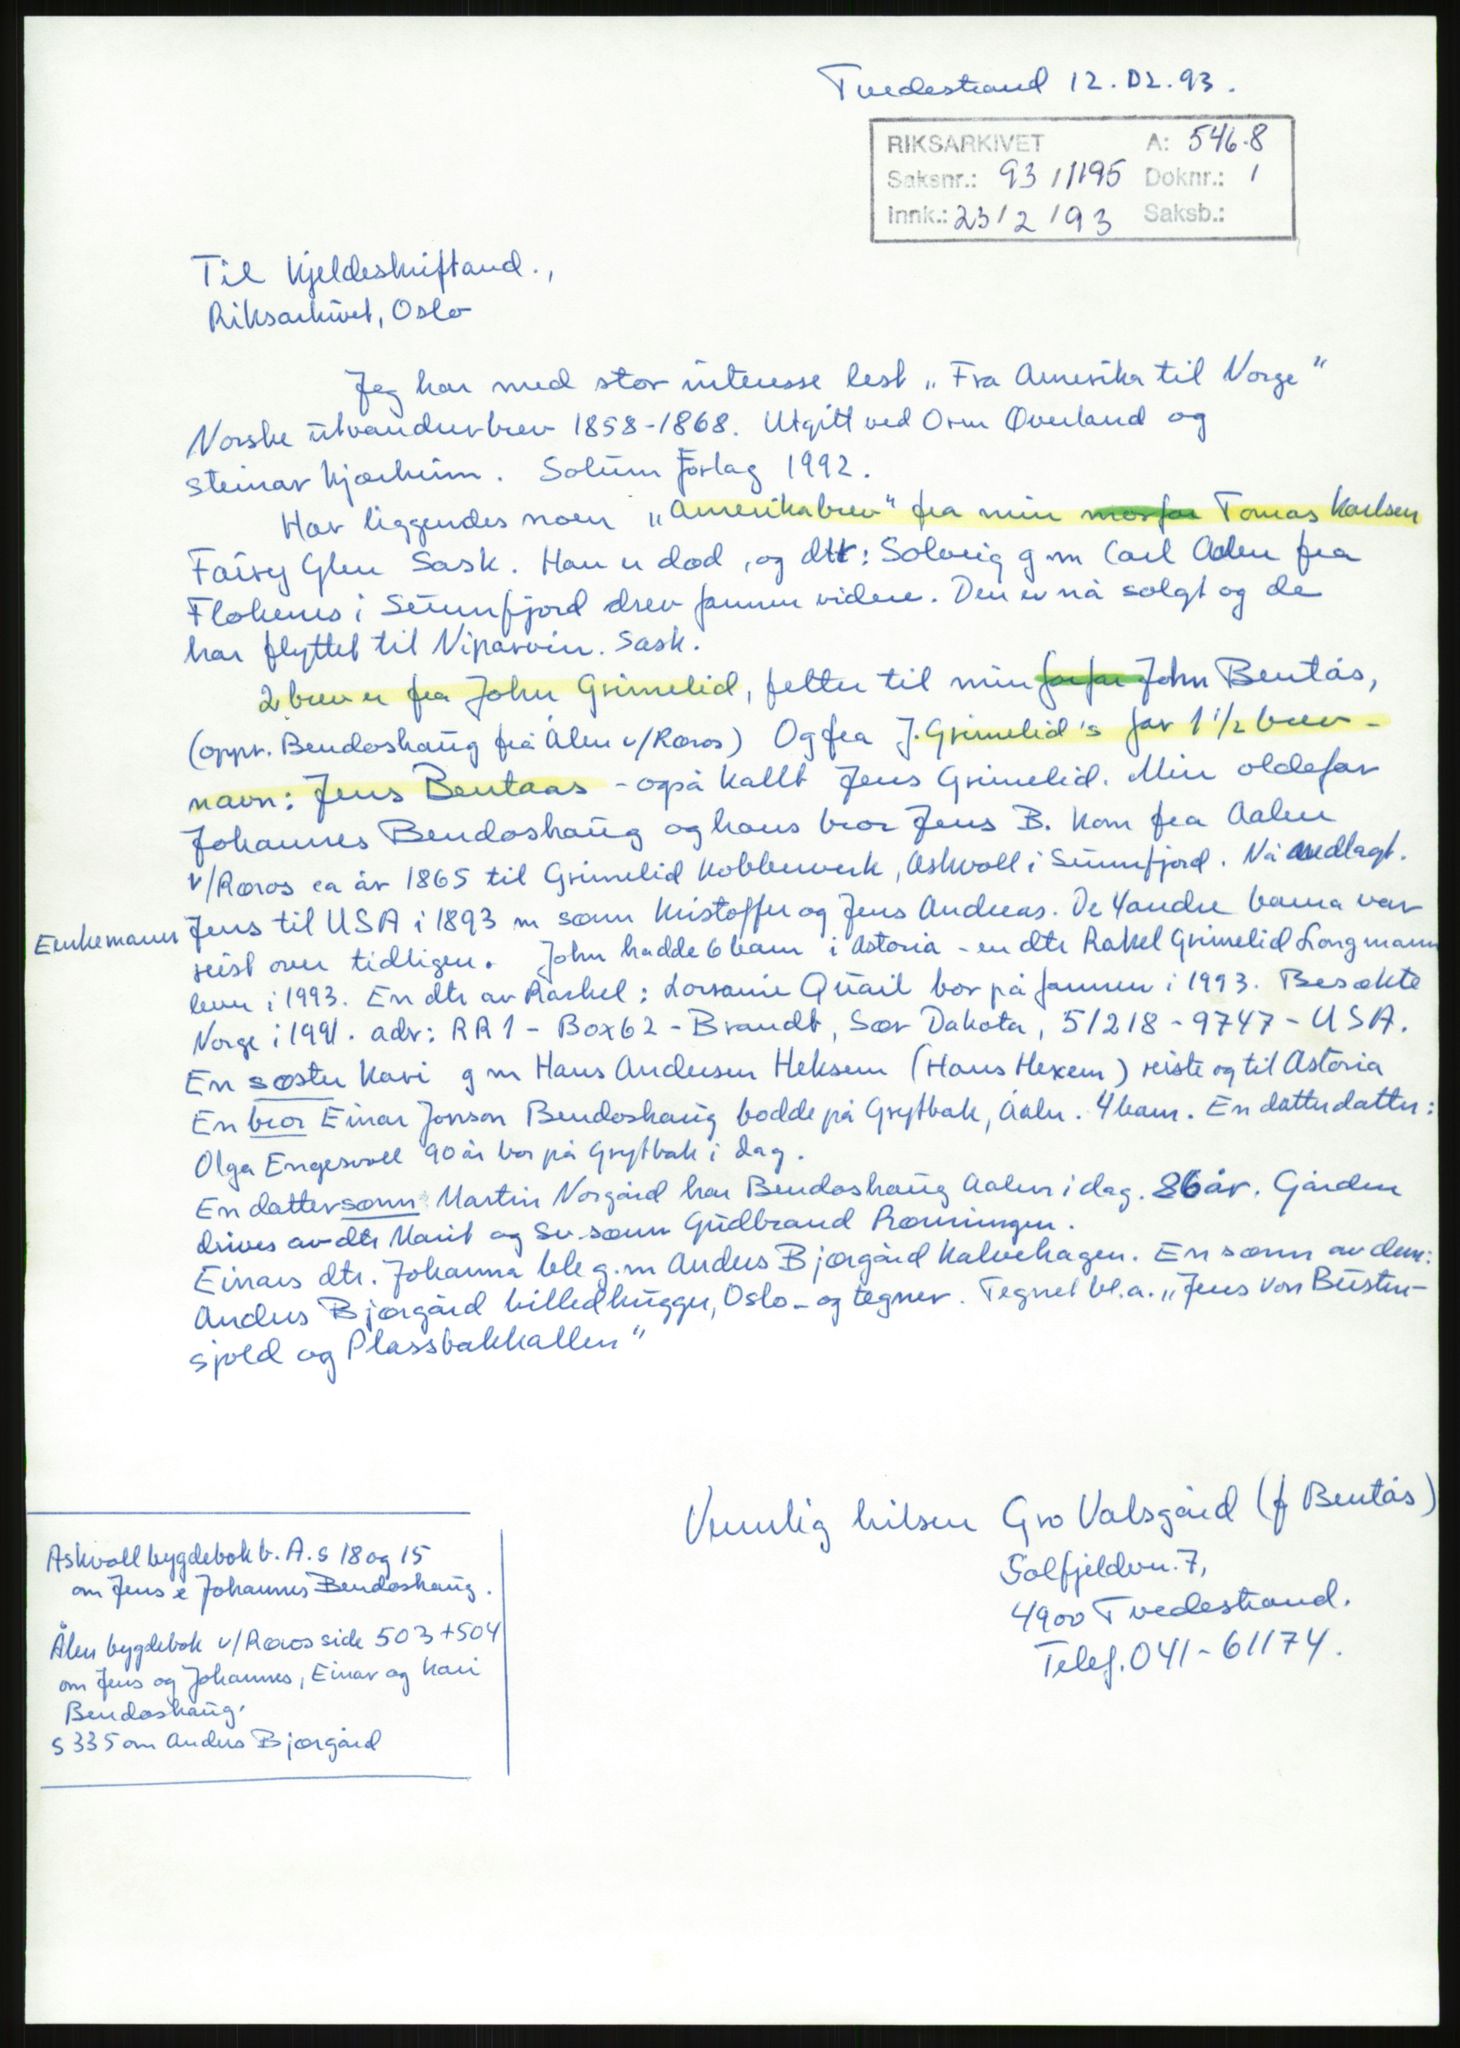 Tvedestrand 12.02.93.
RIKSARKIVET A: 546.8
Saksnr.: 93/1195 Doknr.: 1
Innk.: 23/2/93 Saksb.:
Til Kjeldeskriftavd.,
Riksarkivet, Oslo
Jeg har med stor interesse lest „Fra Amerika til Norge"
Norske utvandrerbrev 1858-1868. Utgitt ved Orm Øverland og
Steinar Kjærheim. Solum Forlag 1992.
Har liggendes noen „Amerikabrev" fra min morfar Tomas Karlsen
Fairy Glen Sask. Han er død, og dtr: Solveig g m Carl Aalen fra
Flokenes i Sunnfjord drev farmen videre. Den er nå solgt og de
har flyttet til Niparvin. Sask.
2 brev er fra John Grimelid, fetter til min farfar John Bentås,
(oppr. Bendoshaug frå Ålen v/Røros) Og fra J. Grimelid's far 1 1/2 brev -
navn: Jens Bentaas - også kallt Jens Grimelid. Min oldefar
Johannes Bendoshaug og hans bror Jens B. kom fra Aalen
v/Røros ca år 1865 til Grimelid Kobberverk, Askvoll i Sunnfjord. Nå nedlagt.
Enkemann Jens til USA i 1893 m sønn Kristoffer og Jens Andreas. De 4 andre barna var
reist over tidligere. John hadde 6 barn i Astoria - en dtr Rakel Grimelid Longmann
lever i 1993. En dtr av Raskel: Lorraine Quail bor på farmen i 1993. Besøkte
Norge i 1991. adr: RR1 - Box 62 - Brandt, Sør Dakota, 51218-9747 - USA.
En søster Kari g m Hans Andersen Heksem (Hans Hexem) reiste og til Astoria
En bror Einar Jonson Bendoshaug bodde på Grytbak, Ålen. 4 barn. En datterdatter:
Olga Engesvoll 90 år bor på Grytbak i dag.
En dattersønn: Martin Norgård har Bendoshaug Aalen i dag. 86 år. Gården
drives av dtr Marit og Sv.sønn Gudbrand Rønningen.
Einars dtr. Johanna ble g.m Anders Bjørgård Kalvehagen. En sønn av dem:
Anders Bjørgård billedhugger, Oslo - og tegner. Tegnet bl.a. „Jens von Busten-
sjold og Plassbakkallen"
Vennlig hilsen Gro Valsgård (f Bentås)
Solfjeldvn. 7,
4900 Tvedestrand.
Telef. 041-61174.
Askvoll bygdebok b. A. s 18 og 15
om Jens & Johannes Bendoshaug.
Ålen bygdebok v/Røros side 503+504
om Jens og Johannes, Einar og Kari
Bendoshaug.
s 335 om Anders Bjørgård